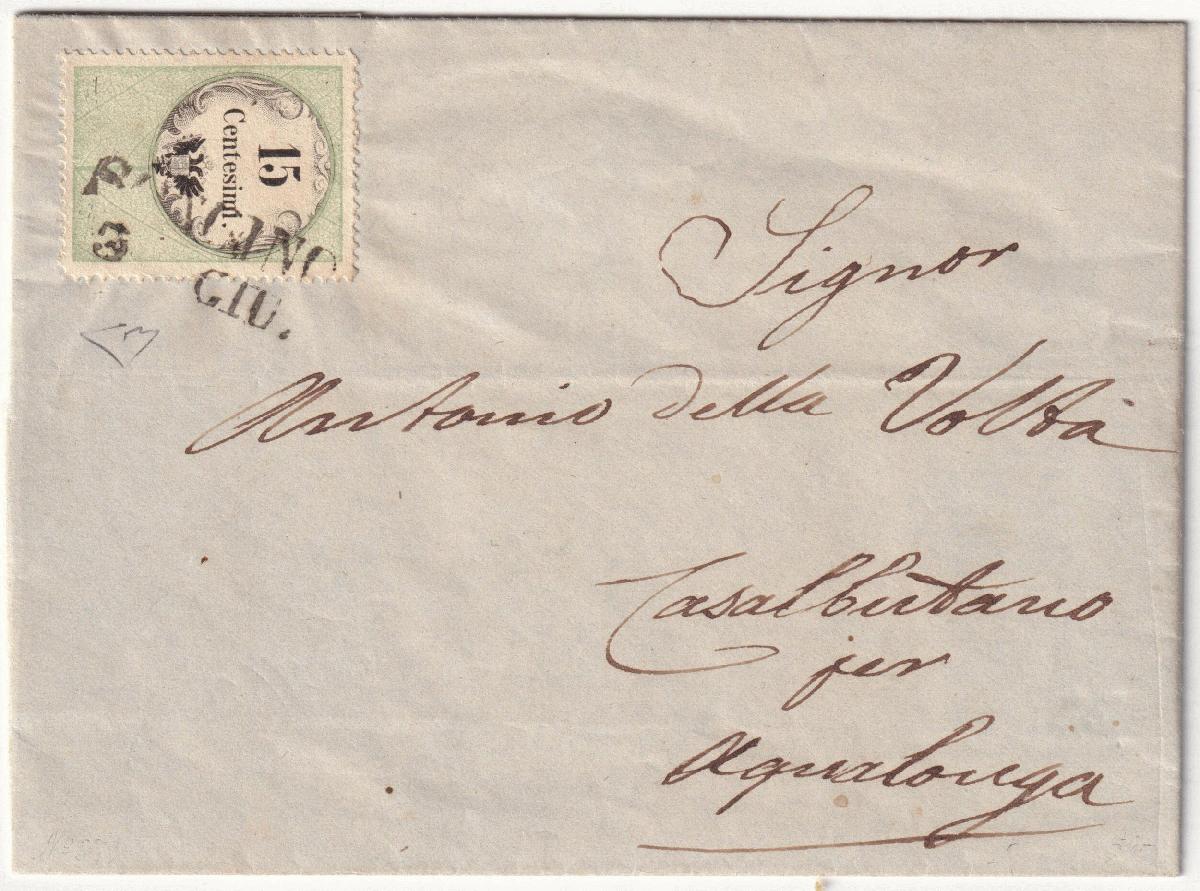 15
Centesimi.
GIU.
Signor
Antonio della Voltà
Casalbutano
per
Aqualonga